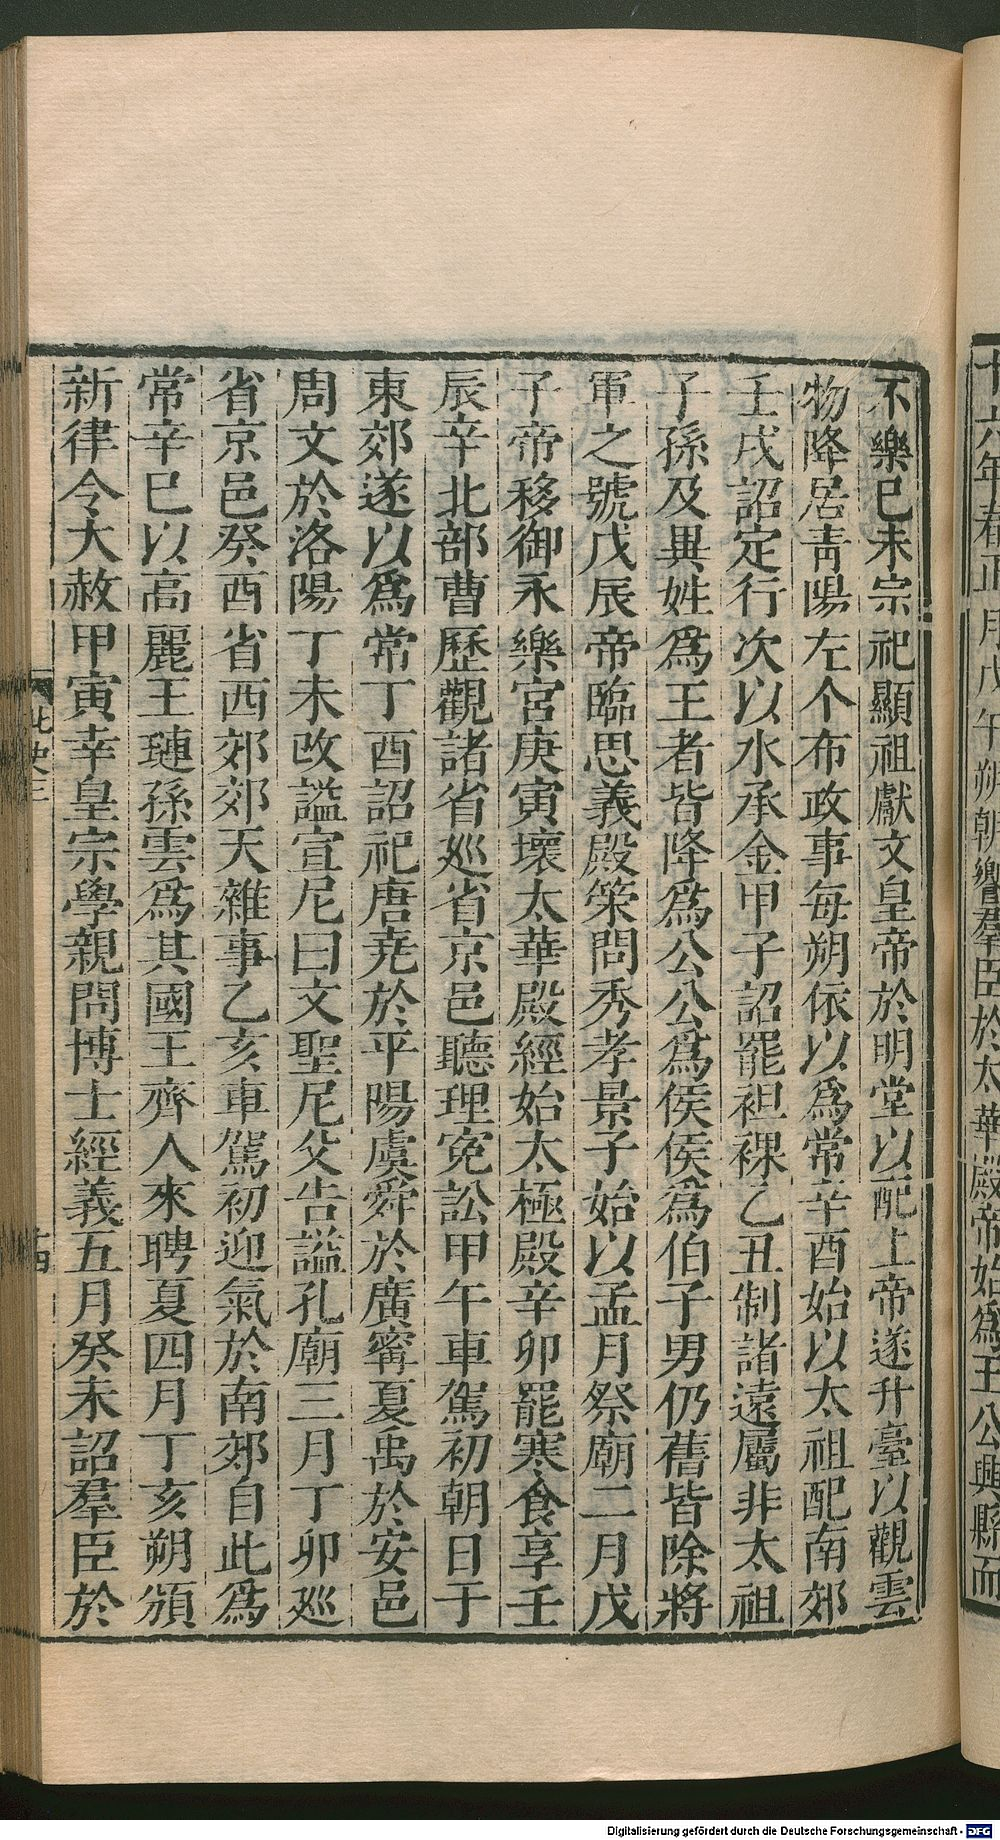 十六年春正月戊午朔朝饗羣臣於太華殿帝始爲王公興縣而
不樂己未宗祀顯祖獻文皇帝於明堂以配上帝遂升臺以觀雲
物降居青陽左个布政事每朔依以爲常辛酉始以太祖配南郊
壬戌詔定行次以水承金甲子詔罷袒裸乙丑制諸遠屬非太祖
子孫及異姓爲王者皆降爲公公爲侯侯爲伯子男仍舊皆除將
軍之號戊辰帝臨思義殿策問秀孝景子始以孟月祭廟二月戊
子帝移御永樂宮庚寅壞太華殿經始太極殿辛卯罷寒食享壬
辰辛北部曹歷觀諸省巡省京邑聽理冤訟甲午車駕初朝日于
東郊遂以爲常丁酉詔祀唐堯於平陽虞舜於廣寗夏禹於安邑
周文於洛陽丁未改謚宣尼曰文聖尼父告謚孔廟三月丁卯巡
省京邑癸酉省西郊郊天雜事乙亥車駕初迎氣於南郊自此爲
常辛巳以高麗王璉孫雲爲其國王齊人來聘夏四月丁亥朔頒
新律令大赦甲寅幸皇宗學親問博士經義五月癸未詔羣臣於
北史三
十四
Digitalisierung gefördert durch die Deutsche Forschungsgemeinschaft - DFG